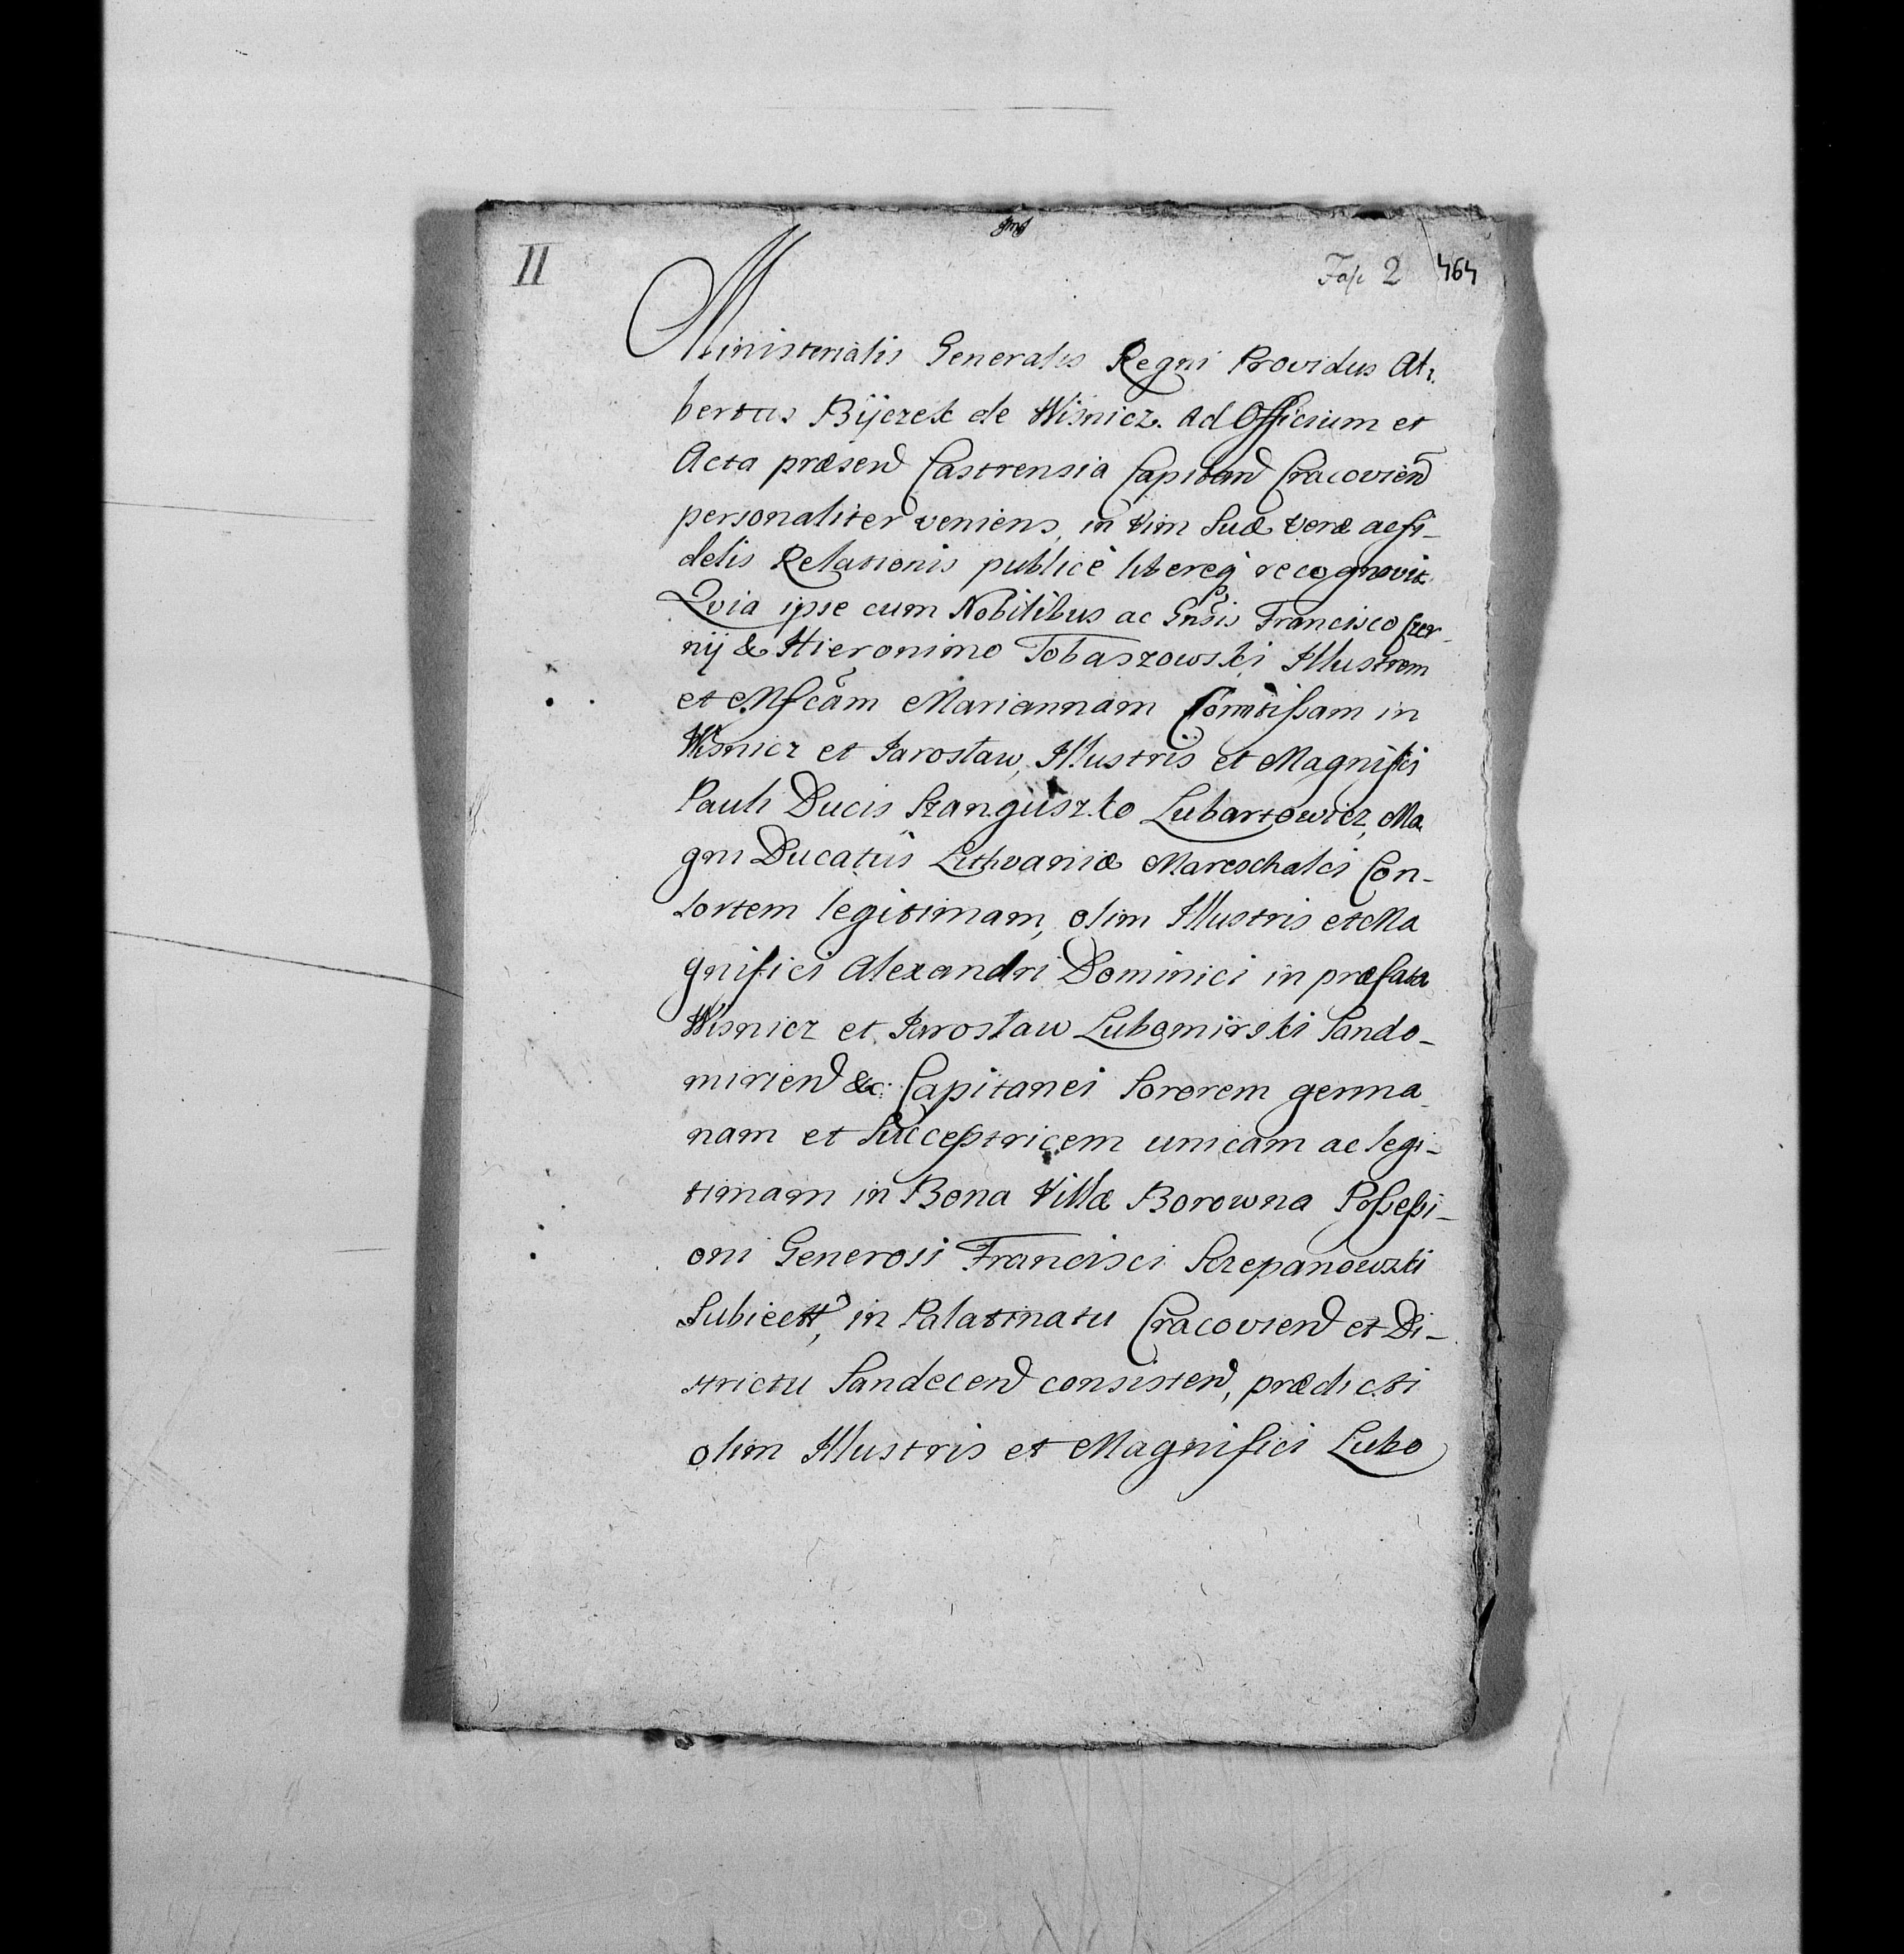 II
Fas 2 464
Ministerialis Generalis Regni Providus Al-
bertus Bijczek de Wisnicz. Ad Officium et
Acta præsen Castrensia Capitan Cracovien
personaliter veniens, in vim suæ veræ ac fi-
delis Relationis publicè libereq recognovit.
Quia ipse cum Nobilibus ac Gnsis Francisco Czer-
nij & Hieronimo Tobaszowski Illustrem
et Mfcam Mariannam Comitissam in
Wisnicz et Jarosław, Illustris et Magnifici
Pauli Ducis Szanguszko Lubartowicz, Ma
gni Ducatûs Lithvaniæ Mareschalci Con-
sortem legitimam, olim Illustris et Ma
gnifici Alexandri Dominici in præfata
Wisnicz et Jarosław Lubomirski Sando-
mirien &c: Capitanei Sororem germa
nam et Succestricem unicam ac legi-
timam in Bona Villæ Borowna Possessi-
oni Generosi Francisci Szczepanowski
Subiectt, in Palatinatu Cracovien et Di-
strictu Sandecen consisten, prædicti
olim Illustris et Magnifici Lubo